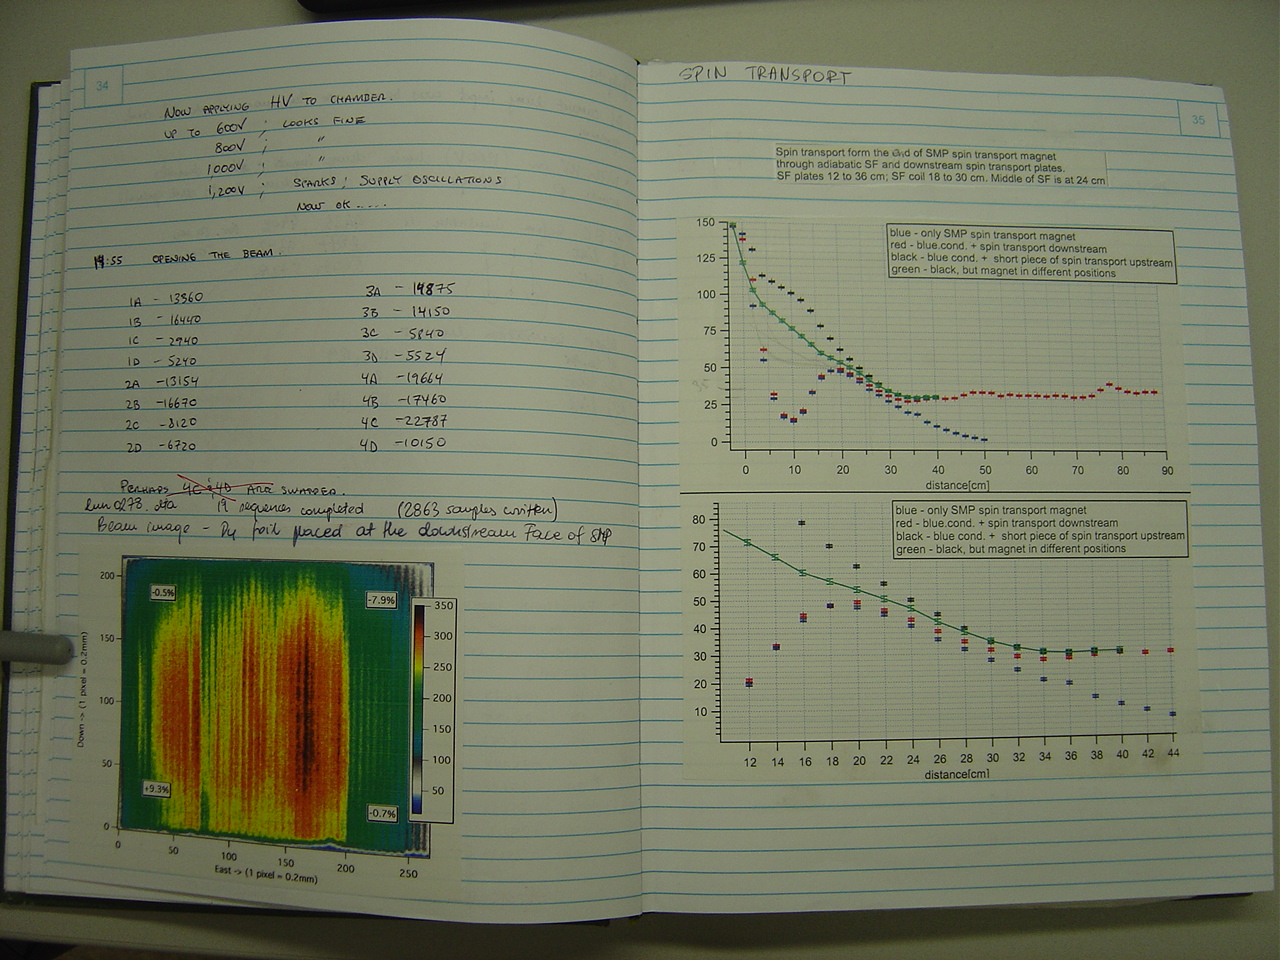 34
NOW APPLYING HV TO CHAMBER.
UP TO 600V ; LOOKS FINE
800V ; "
1000V ; "
1,200V ; SPARKS; SUPPLY OSCILLATIONS
NOW OK .....
OPENING THE BEAM.
1A - 13360
1B - 16440
1C - 2940
1D - 5240
2A - 13154
2B - 16670
2C - 8120
2D - 6720
3A - 14875
3B - 14150
3C - 5840
3D - 5524
4A - 19664
4B - 17460
4C - 22787
4D - 10150
PERHAPS 4C & 4D ARE SWAPPED.
Run 0278.dta 19 sequences completed (2863 samples written)
Beam image - Dy foil placed at the downstream Face of SMP
200
150
100
50
0
Down -> (1 pixel = 0.2mm)
-0.5%
-7.9%
+9.3%
-0.7%
350
300
250
200
150
100
50
0
50
100
150
200
250
East -> (1 pixel = 0.2mm)
SPIN TRANSPORT
35
Spin transport form the end of SMP spin transport magnet
through adiabatic SF and downstream spin transport plates.
SF plates 12 to 36 cm; SF coil 18 to 30 cm. Middle of SF is at 24 cm
blue - only SMP spin transport magnet
red - blue.cond. + spin transport downstream
black - blue cond. + short piece of spin transport upstream
green - black, but magnet in different positions
150
125
100
75
50
25
0
0 10 20 30 40 50 60 70 80 90
distance[cm]
blue - only SMP spin transport magnet
red - blue.cond. + spin transport downstream
black - blue cond. + short piece of spin transport upstream
green - black, but magnet in different positions
80
70
60
50
40
30
20
10
12 14 16 18 20 22 24 26 28 30 32 34 36 38 40 42 44
distance[cm]